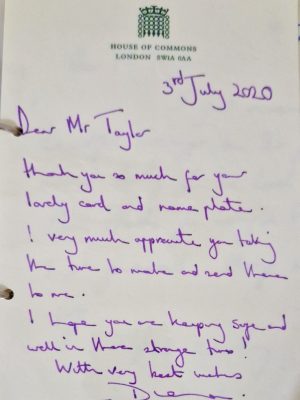 HOUSE OF COMMONS
LONDON SW1A 0AA
3rd July 2020
Dear Mr Taylor
thank you so much for your
lovely card and name plate.
I very much appreciate you taking
the time to make and send these
to me.
I hope you are keeping safe and
well in these strange times!
With very best wishes